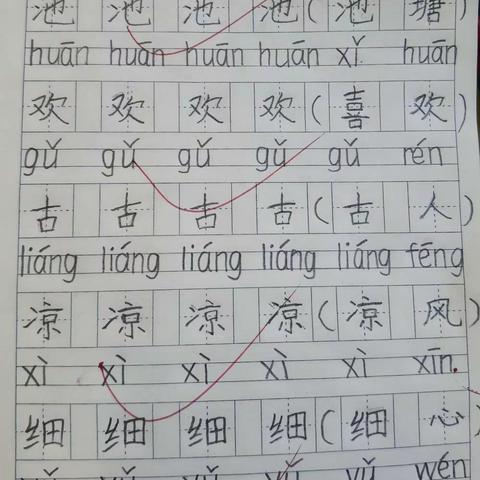 池 池 池 池(池 塘)
huān huān huān huān xǐ huān
欢 欢 欢 欢(喜 欢)
gǔ gǔ gǔ gǔ gǔ rén
古 古 古 古(古 人)
liáng liáng liáng liáng liáng fēng
凉 凉 凉 凉(凉 风)
xì xì xì xì xì xīn.
细 细 细 细(细 心)
yǔ yǔ yǔ yǔ yǔ wén